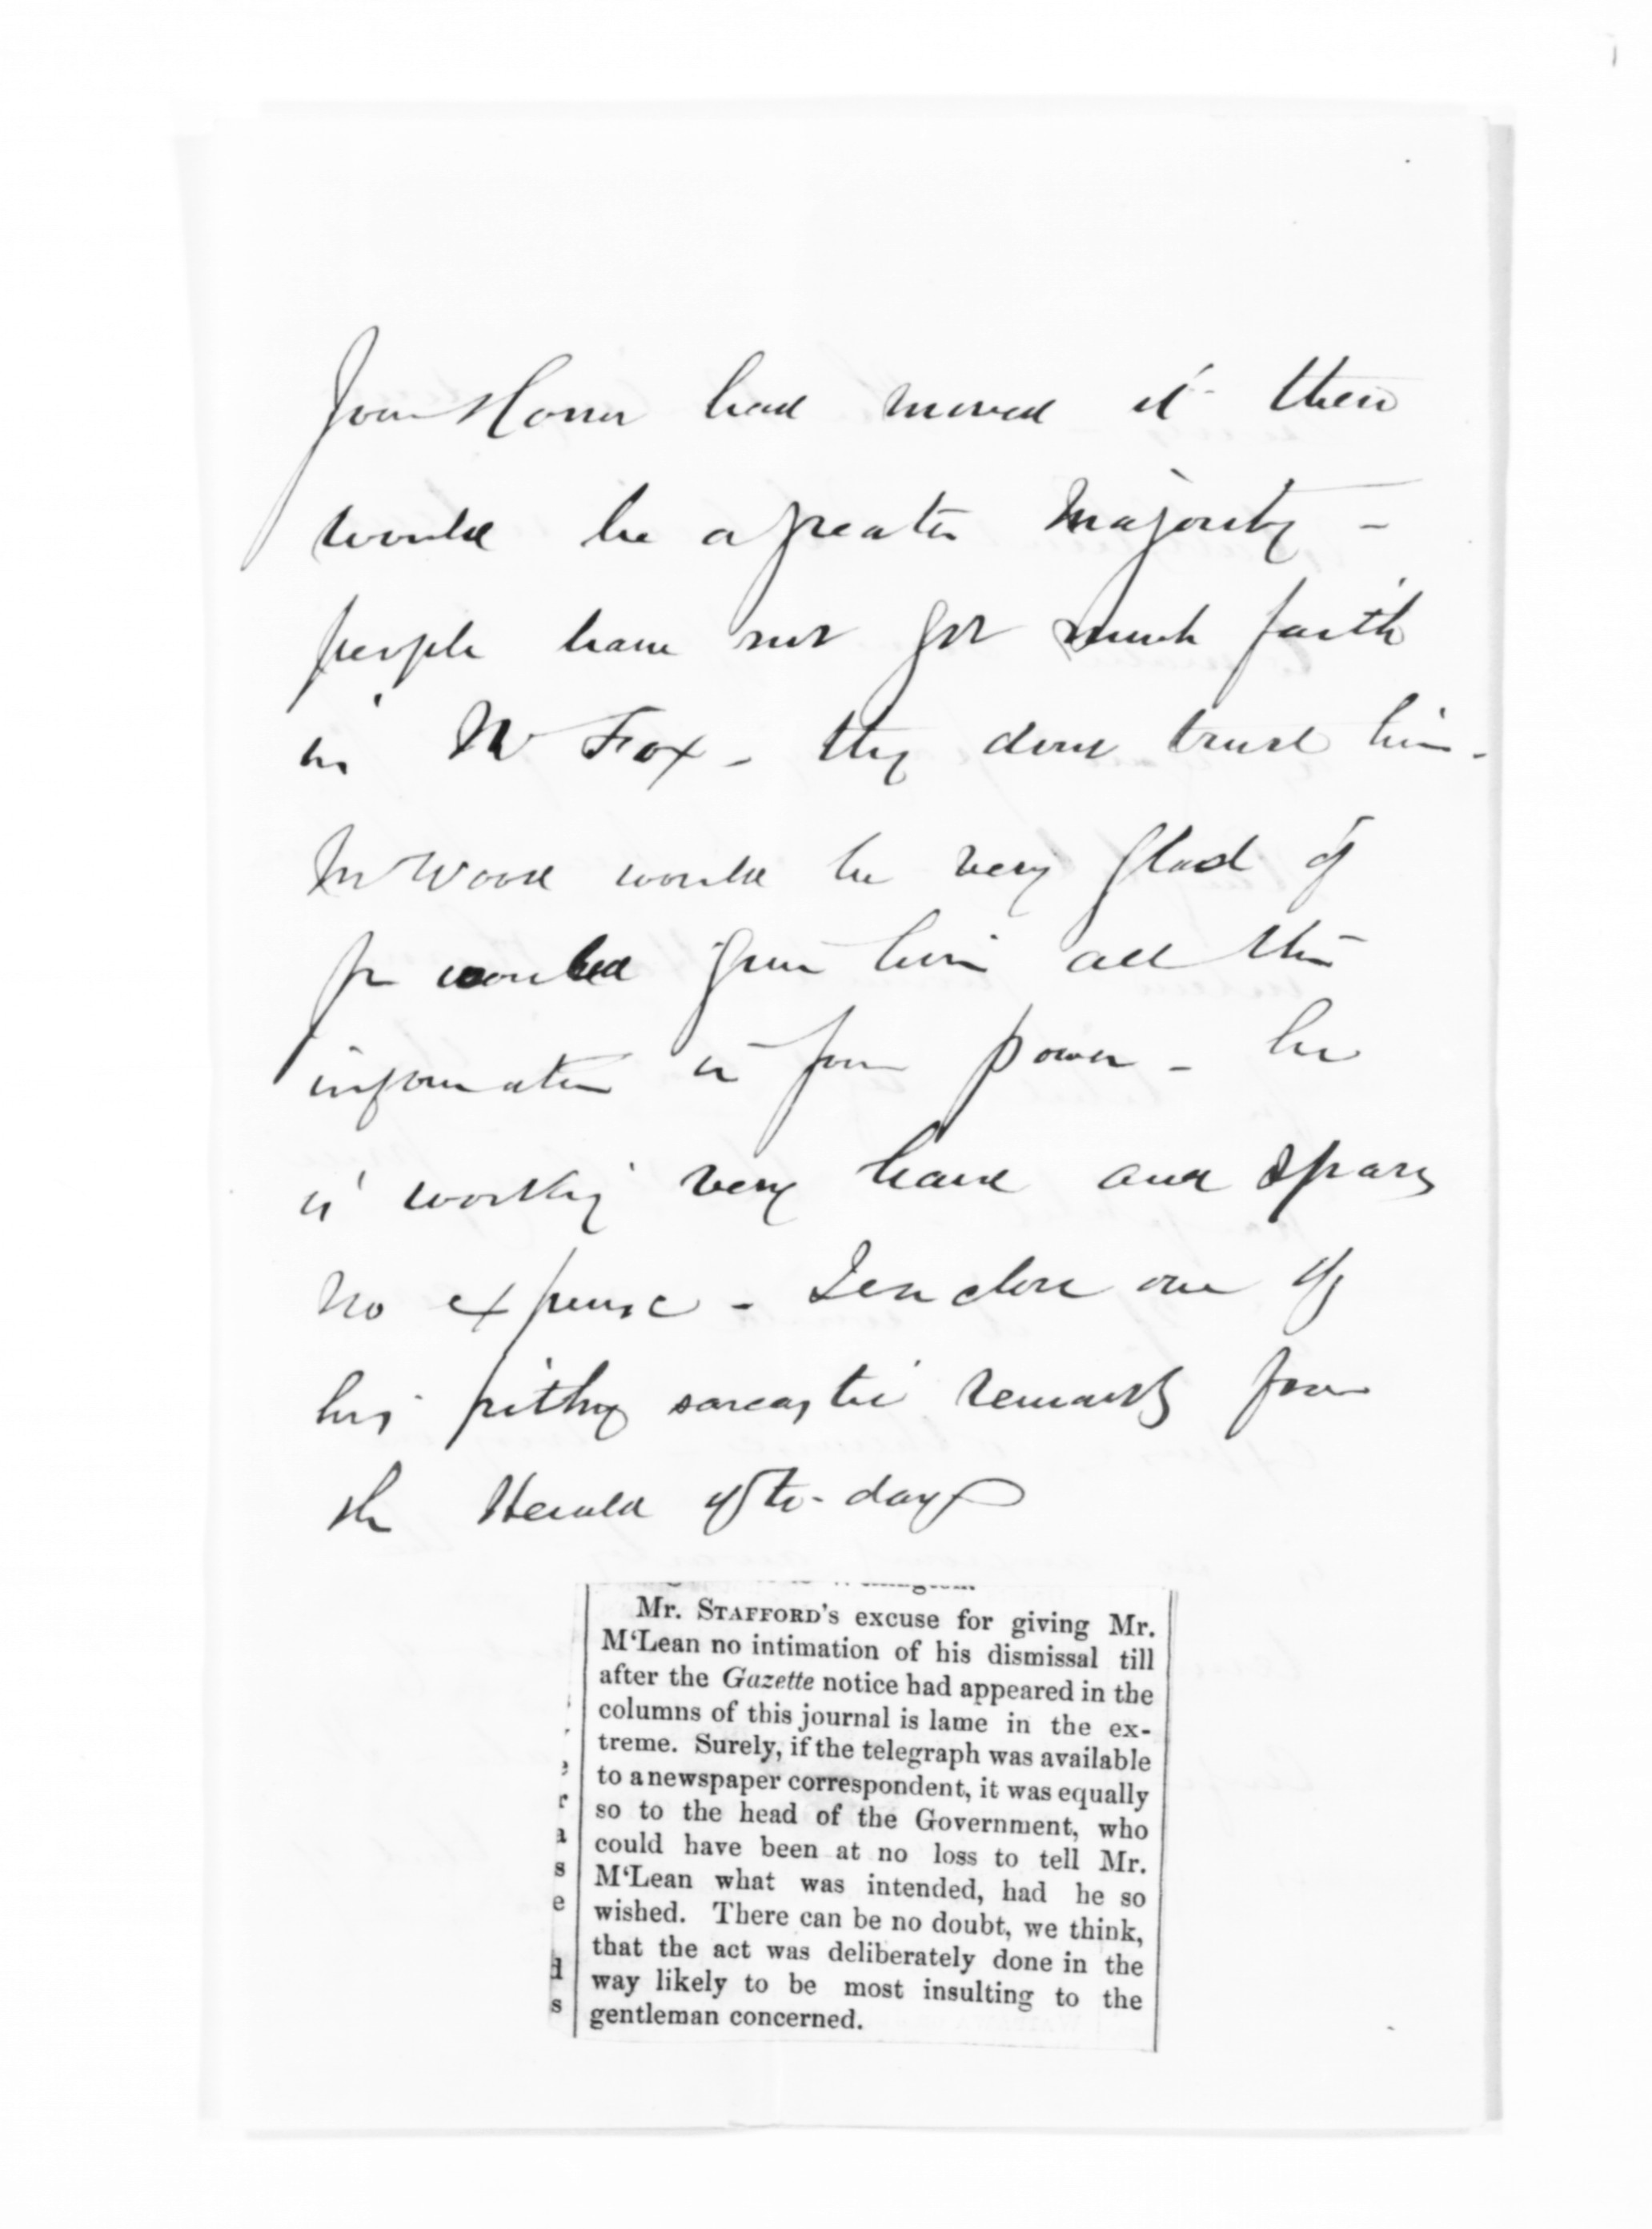 Your Honor had moved it there
would be a greater majority -
people have not got much faith
in Mr Fox - they dont trust him -
Mr Wood would be very glad if
you would give him all the
information in your power - he
is working very hard and spares
no expense - I enclose one of
his pithy sarcastic remarks from
the Herald of to-day
Mr. STAFFORD'S excuse for giving Mr.
M'Lean no intimation of his dismissal till
after the Gazette notice had appeared in the
columns of this journal is lame in the ex-
treme. Surely, if the telegraph was available
to a newspaper correspondent, it was equally
so to the head of the Government, who
could have been at no loss to tell Mr.
M'Lean what was intended, had he so
wished. There can be no doubt, we think,
that the act was deliberately done in the
way likely to be most insulting to the
gentleman concerned.